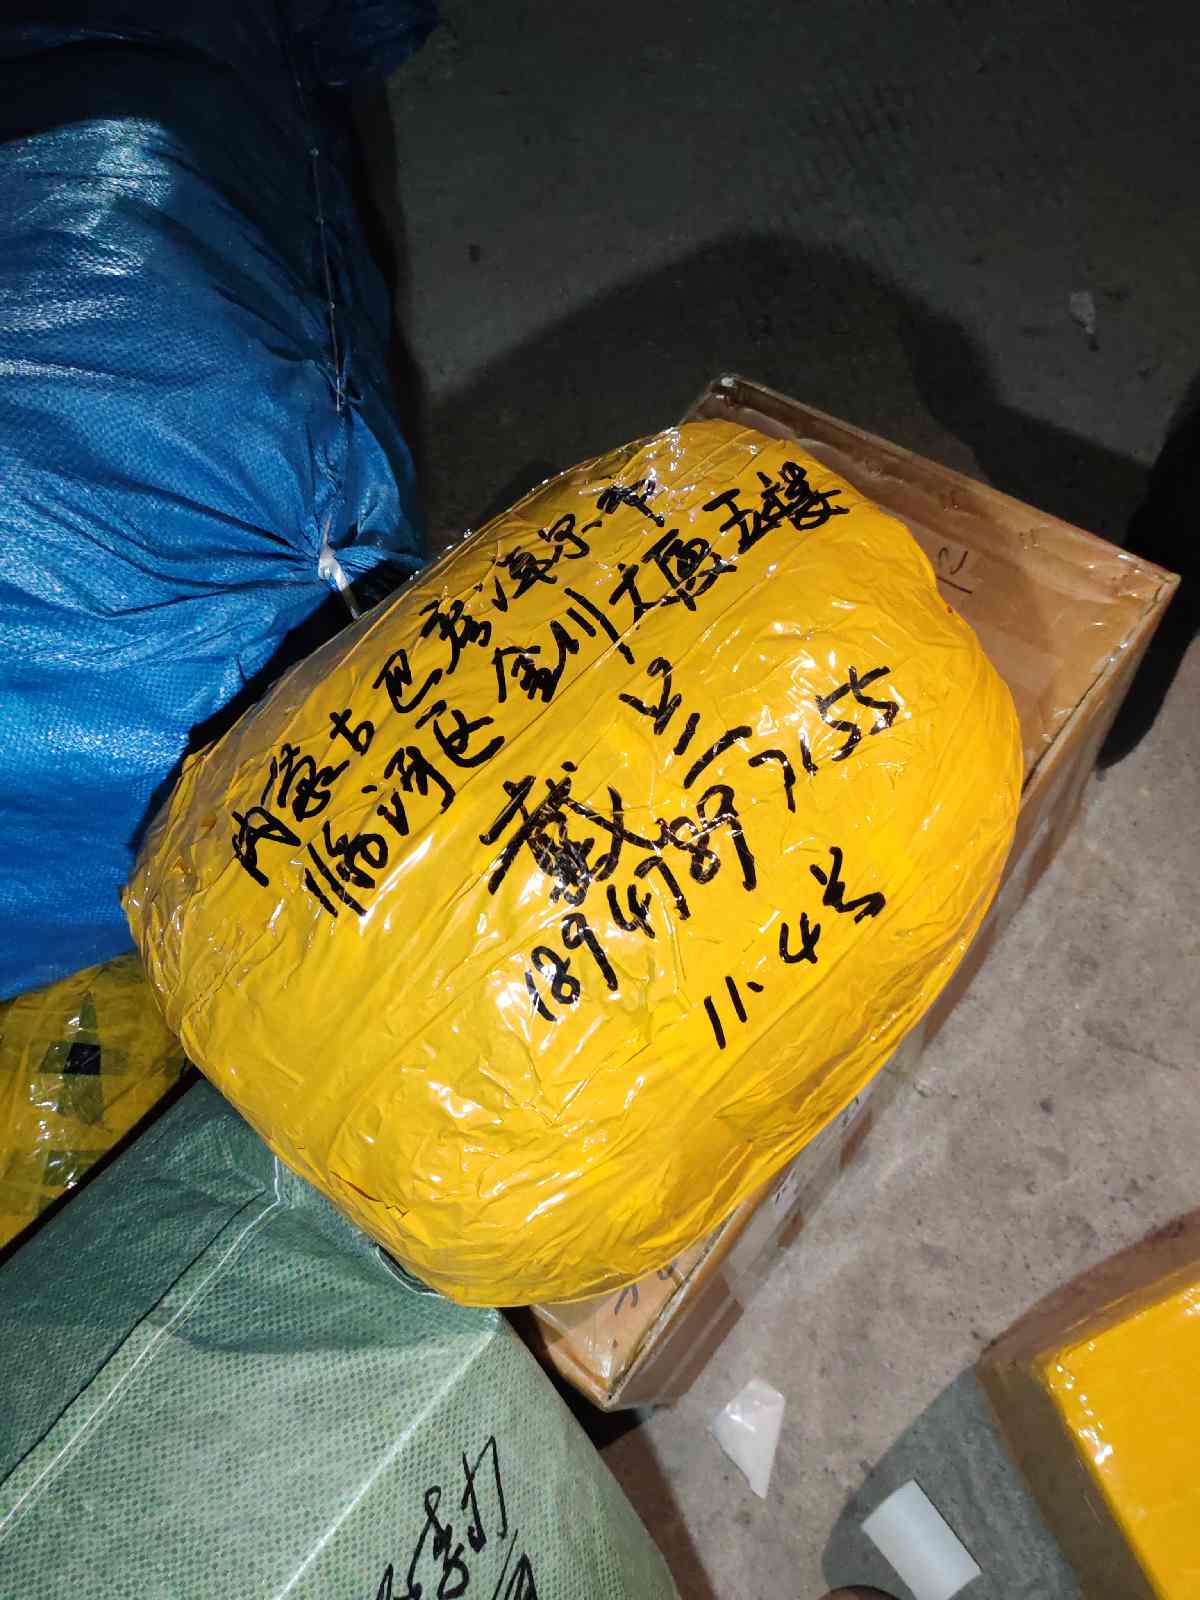 内蒙古巴彦淖尔市
临河区金川大厦五楼
戴
18947897155
11.4号